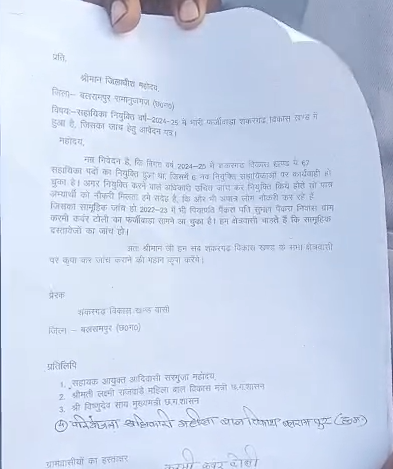 प्रति,
श्रीमान जिलाधीश महोदय,
जिला:– बलरामपुर रामानुजगंज (छ०ग०)
विषय:–सहायिका नियुक्ति वर्ष–2024-25 में भारी फर्जीवाड़ा शंकरगढ़ विकास खण्ड में
हुआ है, जिसका जांच हेतु आवेदन पत्र।
महोदय,
नम्र निवेदन है, कि विगत वर्ष 2024-25 में शंकरगढ़ विकास खण्ड में 67
सहायिका पदों का नियुक्ति हुआ था जिसमें 6 नव नियुक्ति सहायिकाओं पर कार्यवाही हो
चुका है। अगर नियुक्ति करने वाले अधिकारी उचित जांच कर नियुक्ति किये होते तो पात्र
अभ्यार्थी को नौकरी मिलता हमें संदेह है, कि और भी अपात्र लोग नौकरी कर रहे हैं
जिसका सामूहिक जांच हो 2022-23 में भी पैंकरा पति सुभाष पैंकरा निवास ग्राम
करमी कवर टोली का फर्जीवाड़ा सामने आ चुका है। हम क्षेत्रवासी चाहते हैं कि सामूहिक
दस्तावेजों का जांच हो।
अतः श्रीमान जी हम सब शंकरगढ़ विकास खण्ड के सभी क्षेत्रवासी
पर कृपा कर जांच कराने की महान कृपा करेंगे।
प्रेरक
शंकरगढ़ विकास खण्ड वासी
जिला – बलरामपुर (छ०ग०)
प्रतिलिपि
1. सहायक आयुक्त आदिवासी सरगुजा महोदय,
2. श्रीमती लक्ष्मी राजवाड़े महिला बाल विकास मंत्री छ.ग.शासन
3. श्री विष्णुदेव साय मुख्यमंत्री छ.ग.शासन
(4) परियोजना अधिकारी महिला बाल विकास बलरामपुर (छ.ग.)
ग्रामवासीयों का हस्ताक्षर